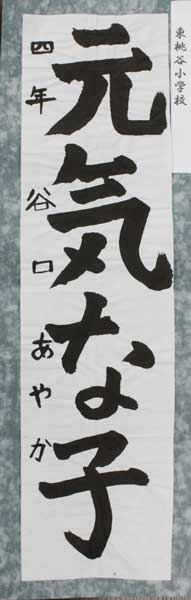 東桃谷小学校
元気な子
四年 谷口あやか